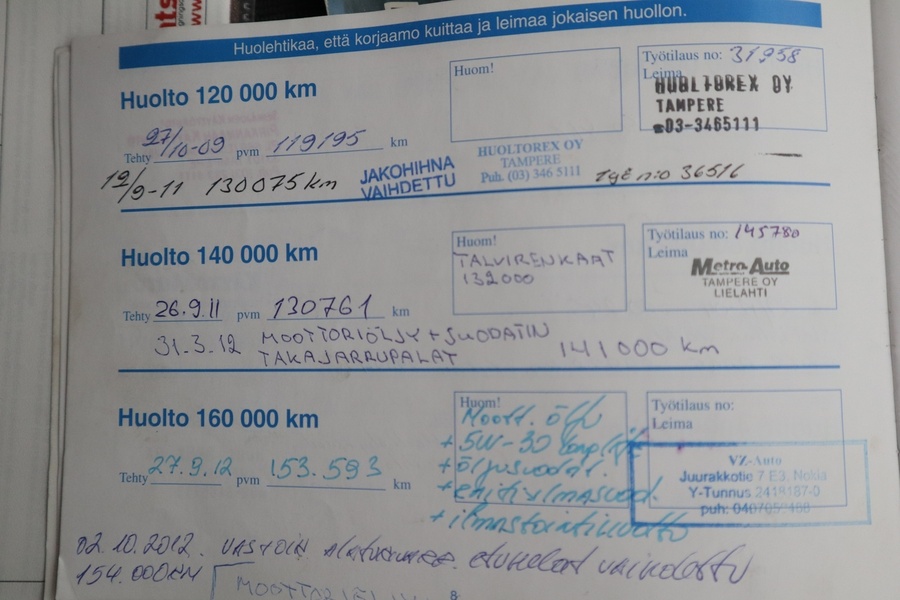 Huolehtikaa, että korjaamo kuittaa ja leimaa jokaisen huollon.
Huolto 120 000 km
Huom!
Työtilaus no: 31958
Leima
HUOLTOREX OY
TAMPERE
☎03-3465111
Tehty 27/10-09 pvm 119195 km
HUOLTOREX OY
TAMPERE
Puh. (03) 346 5111
12/9-11 130075 km
JAKOHIHNA
VAIHDETTU
Työ n:o 36516
Huolto 140 000 km
Huom!
TALVIRENKAAT
132000
Työtilaus no: 145780
Leima
Metro-Auto
TAMPERE OY
LIELAHTI
Tehty 26.9.11 pvm 130761 km
31.3.12 MOOTTORIÖLJY + SUODATIN
TAKAJARRUPALAT
141000 km
Huolto 160 000 km
Huom!
Moott. öljy
+ 5W-30 long life
+ öljysuodat.
+ ilmastointihuolto
Työtilaus no:
Leima
VZ-Auto
Juurakkotie 7 E3, Nokia
Y-Tunnus 2419187-0
puh:
Tehty 27.9.12 pvm 153.593 km
02.10.2012. vaihdettu
154.000KM
8